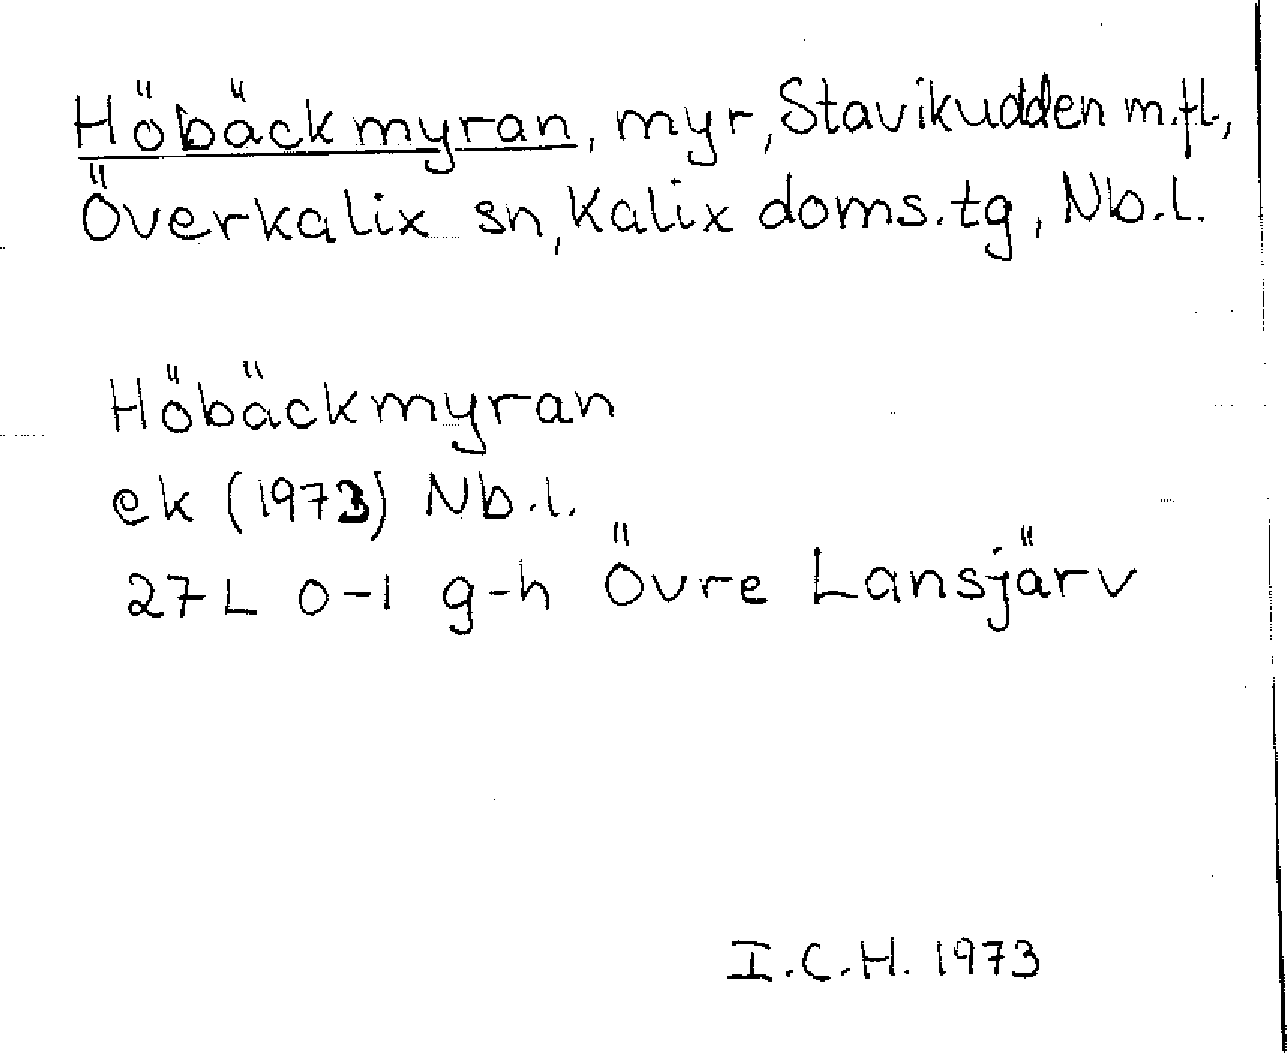 Höbäckmyran, myr, Stavikudden m.fl.,
Överkalix sn, Kalix doms.tg, Nb.l.
Höbäckmyran
ek (1973) Nb.l.
27L 0-1 g-h Övre Lansjärv
I.C.H. 1973